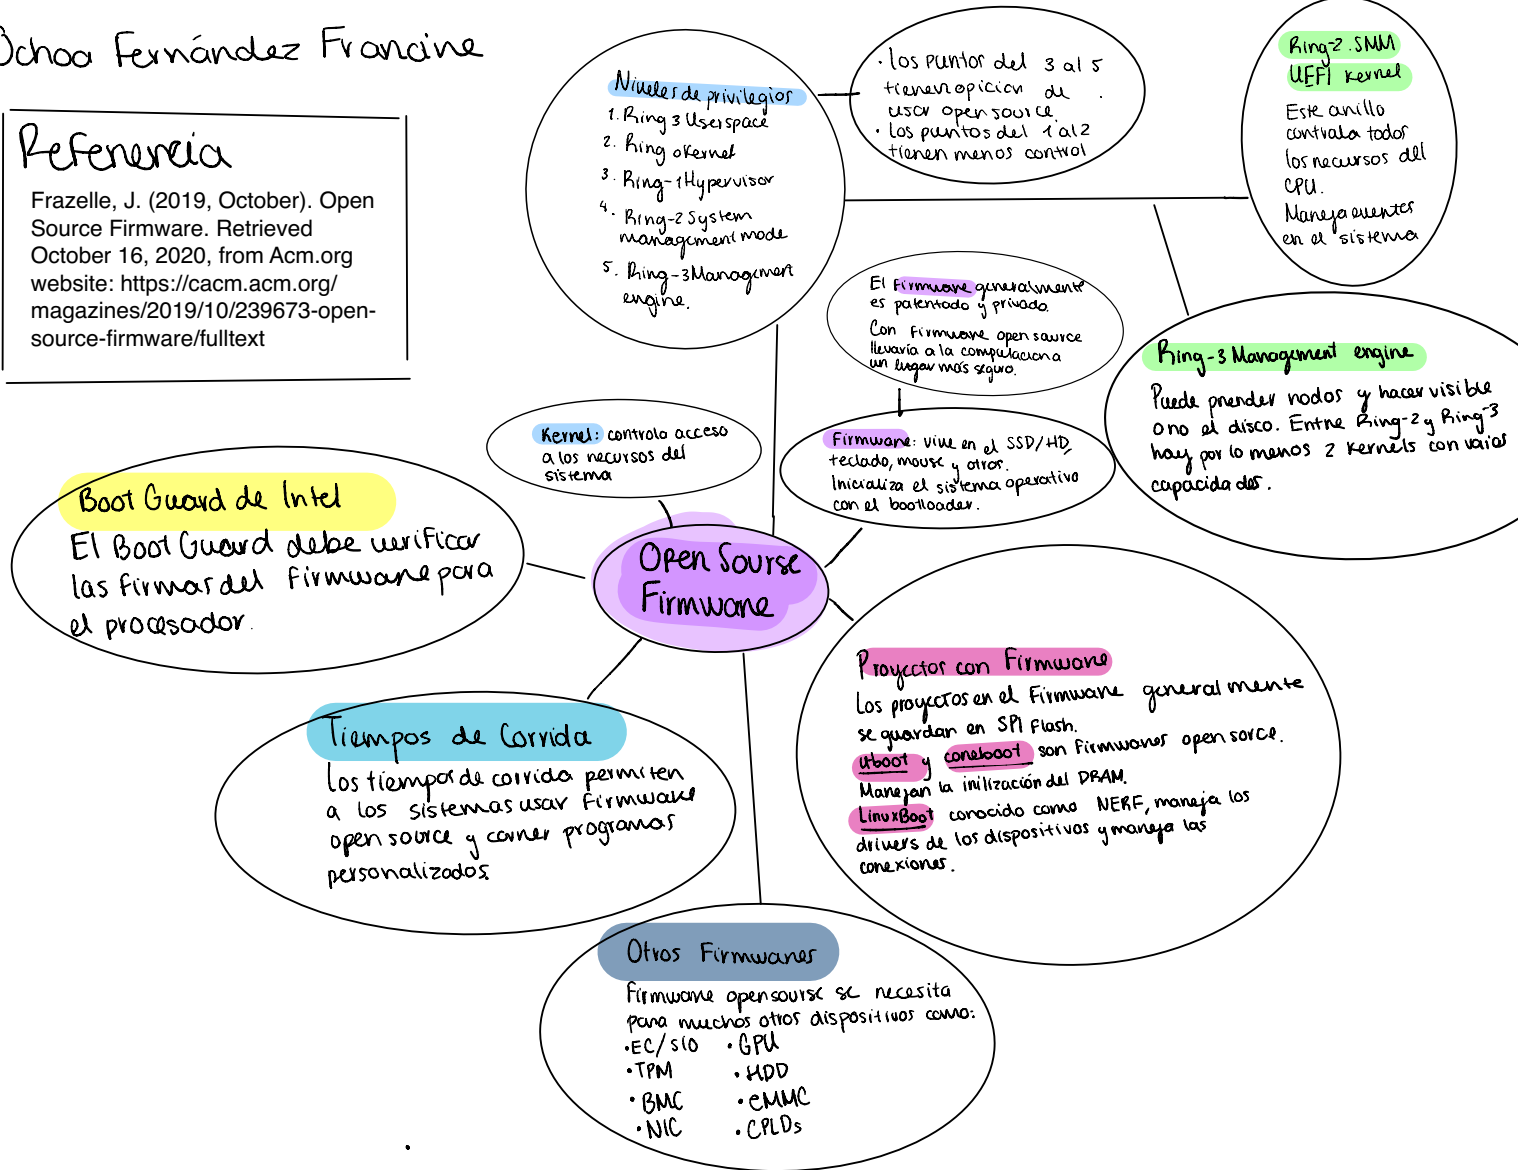 Ochoa Fernández Francine
Referencia
Frazelle, J. (2019, October). Open
Source Firmware. Retrieved
October 16, 2020, from Acm.org
website: https://cacm.acm.org/
magazines/2019/10/239673-open-
source-firmware/fulltext
Niveles de privilegios
1. Ring 3 Userspace
2. Ring 0 Kernel
3. Ring-1 Hypervisor
4. Ring-2 System
management mode
5. Ring-3 Management
engine.
• Los puntos del 3 al 5
tienen opicion de
usar open source.
• Los puntos del 1 al 2
tienen menos control
Ring-2. SMM
UEFI kernel
Este anillo
controla todos
los recursos del
CPU.
Maneja eventes
en el sistema
El Firmware generalmente
es patentado y privado.
Con Firmware open source
llevaría a la computacion a
un lugar más seguro.
Ring-3 Management engine
Puede prender nodos y hacer visible
o no el disco. Entre Ring-2 y Ring-3
hay por lo menos 2 kernels con varias
capacidades.
Kernel: controla acceso
a los recursos del
sistema
Firmware: vive en el SSD/HD,
teclado, mouse y otros.
Inicializa el sistema operativo
con el bootloader.
Boot Guard de Intel
El Boot Guard debe verificar
las firmas del firmware para
el procesador.
Open Sourse
Firmware
Proyectos con Firmware
Los proyectos en el Firmware generalmente
se guardan en SPI Flash.
Uboot y coreboot son firmwares open sorce.
Manejan la inilización del DRAM.
LinuxBoot conocido como NERF, maneja los
drivers de los dispositivos y maneja las
conexiones.
Tiempos de Corrida
Los tiempos de corrida permiten
a los sistemas usar firmware
open source y correr programas
personalizados.
Otros Firmwares
Firmware opensourse se necesita
para muchos otros dispositivos como:
• EC/SIO • GPU
• TPM • HDD
• BMC • eMMC
• NIC • CPLDs